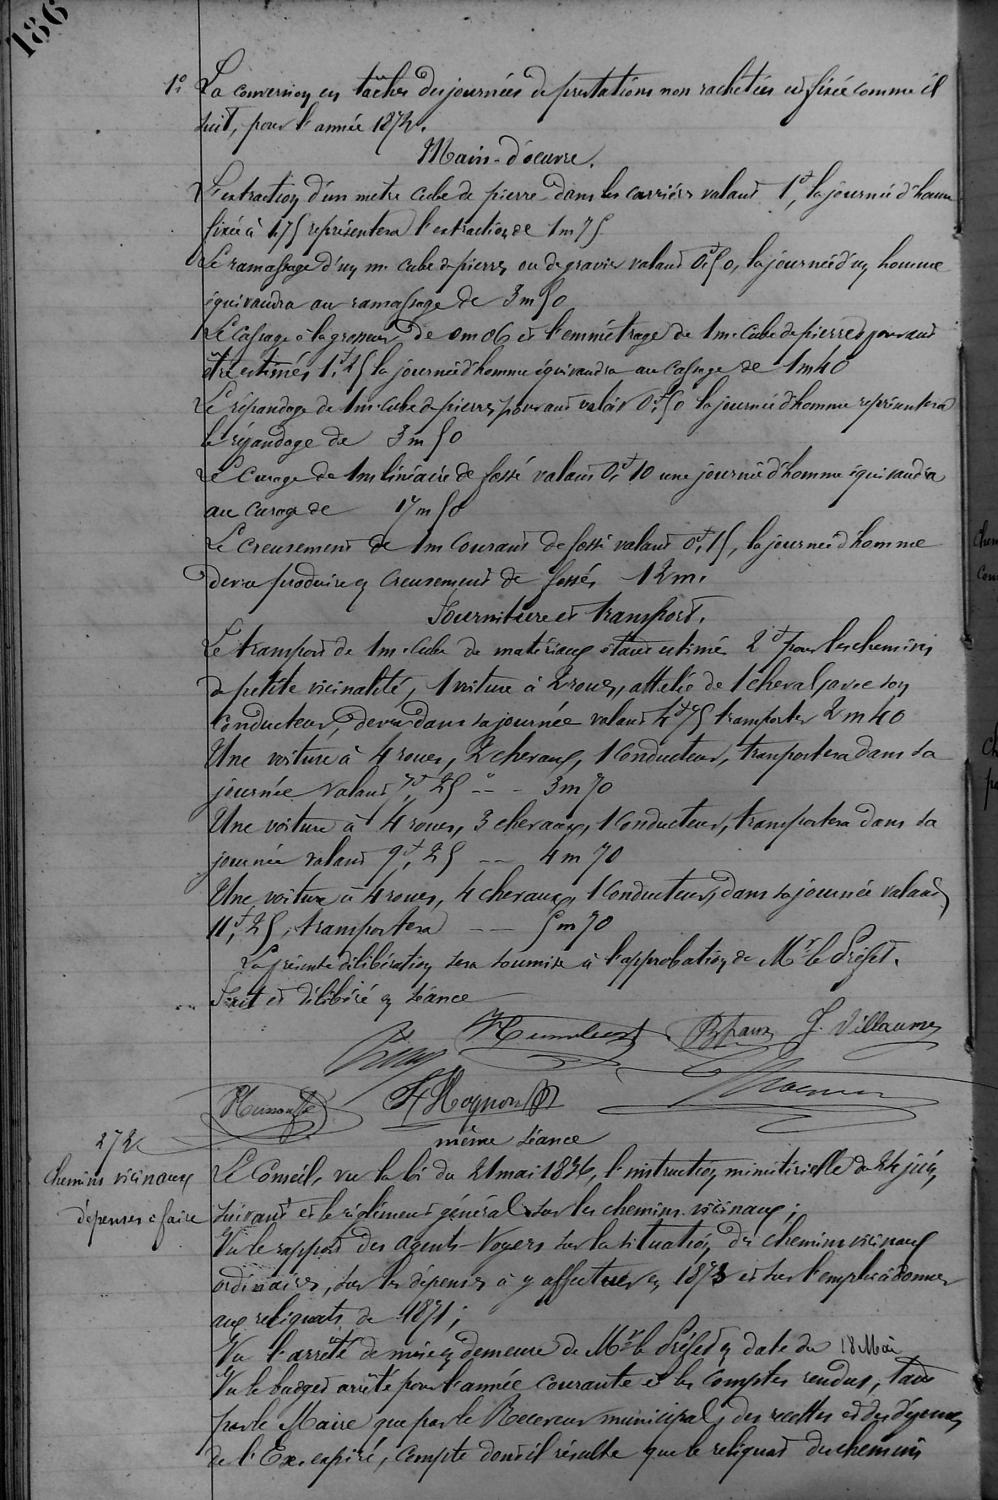 186
1° La conversion en tâches des journées de prestations non rachetées est fixée comme il
suit, pour l'année 1872.
Main-d'oeuvre.
L'extraction d'un mètre cube de pierre dans les carrières valant 1f, la journée d'homme
fixée à 1.75 représentera l'extraction de 1m75
Le ramassage d'un m. cube de pierres ou de gravier valant 0f,50, la journée d'un homme
équivaudra au ramassage de 3m50
Le cassage à la grosseur de 0m06 et l'emmétrage de 1m. cube de pierres pouvant
être estimés 1f,25 la journée d'homme équivaudra au cassage de 1m40
Le répandage de 1m. cube de pierres pouvant valoir 0f,50 la journée d'homme représentera
le répandage de 3m50
Le curage de 1m linéaire de fossé valant 0f,10 une journée d'homme équivaudra
au curage de 17m50
Le creusement de 1m courant de fossé valant 0f,15, la journée d'homme
devra produire en creusement de fossés 12m.
Fourniture et transport.
Le transport de 1m. cube de matériaux étant estimé 2f pour les chemins
de petite vicinalité, 1 voiture à 2 roues, attelée de 1 cheval, avec son
conducteur, devra dans sa journée valant 4f,75 transporter 2m40
Une voiture à 4 roues, 2 chevaux, 1 conducteur, transportera dans sa
journée valant 7f,25 -- - 3m70
Une voiture à 4 roues, 3 chevaux, 1 conducteur, transportera dans sa
journée valant 9f,25 -- 4m70
Une voiture à 4 roues, 4 chevaux, 1 conducteur, dans sa journée valant
11f,25, transportera -- 5m70
La présente délibération sera soumise à l'approbation de Mr le Préfet.
Fait et délibéré en séance
J. Villaume
même séance
272
Chemins vicinaux
dépenses à faire
Le Conseil, vu la loi du 21 mai 1836, l'instruction ministérielle du 24 juin
suivant et le règlement général sur les chemins vicinaux;
Vu le rapport des agents-Voyers sur la situation des chemins vicinaux
ordinaires, sur les dépenses à y affectuer en 1873 et sur l'emploi à donner
aux reliquats de 1871;
Vu l'arrêté de mise en demeure de Mr le Préfet en date du 18 Mai
Vu le budget arrêté pour l'année courante et les comptes rendus, tant
par le Maire que par le Receveur municipal, des recettes et des dépenses
de l'Ex. expiré, compte dont il résulte que le reliquat des chemins